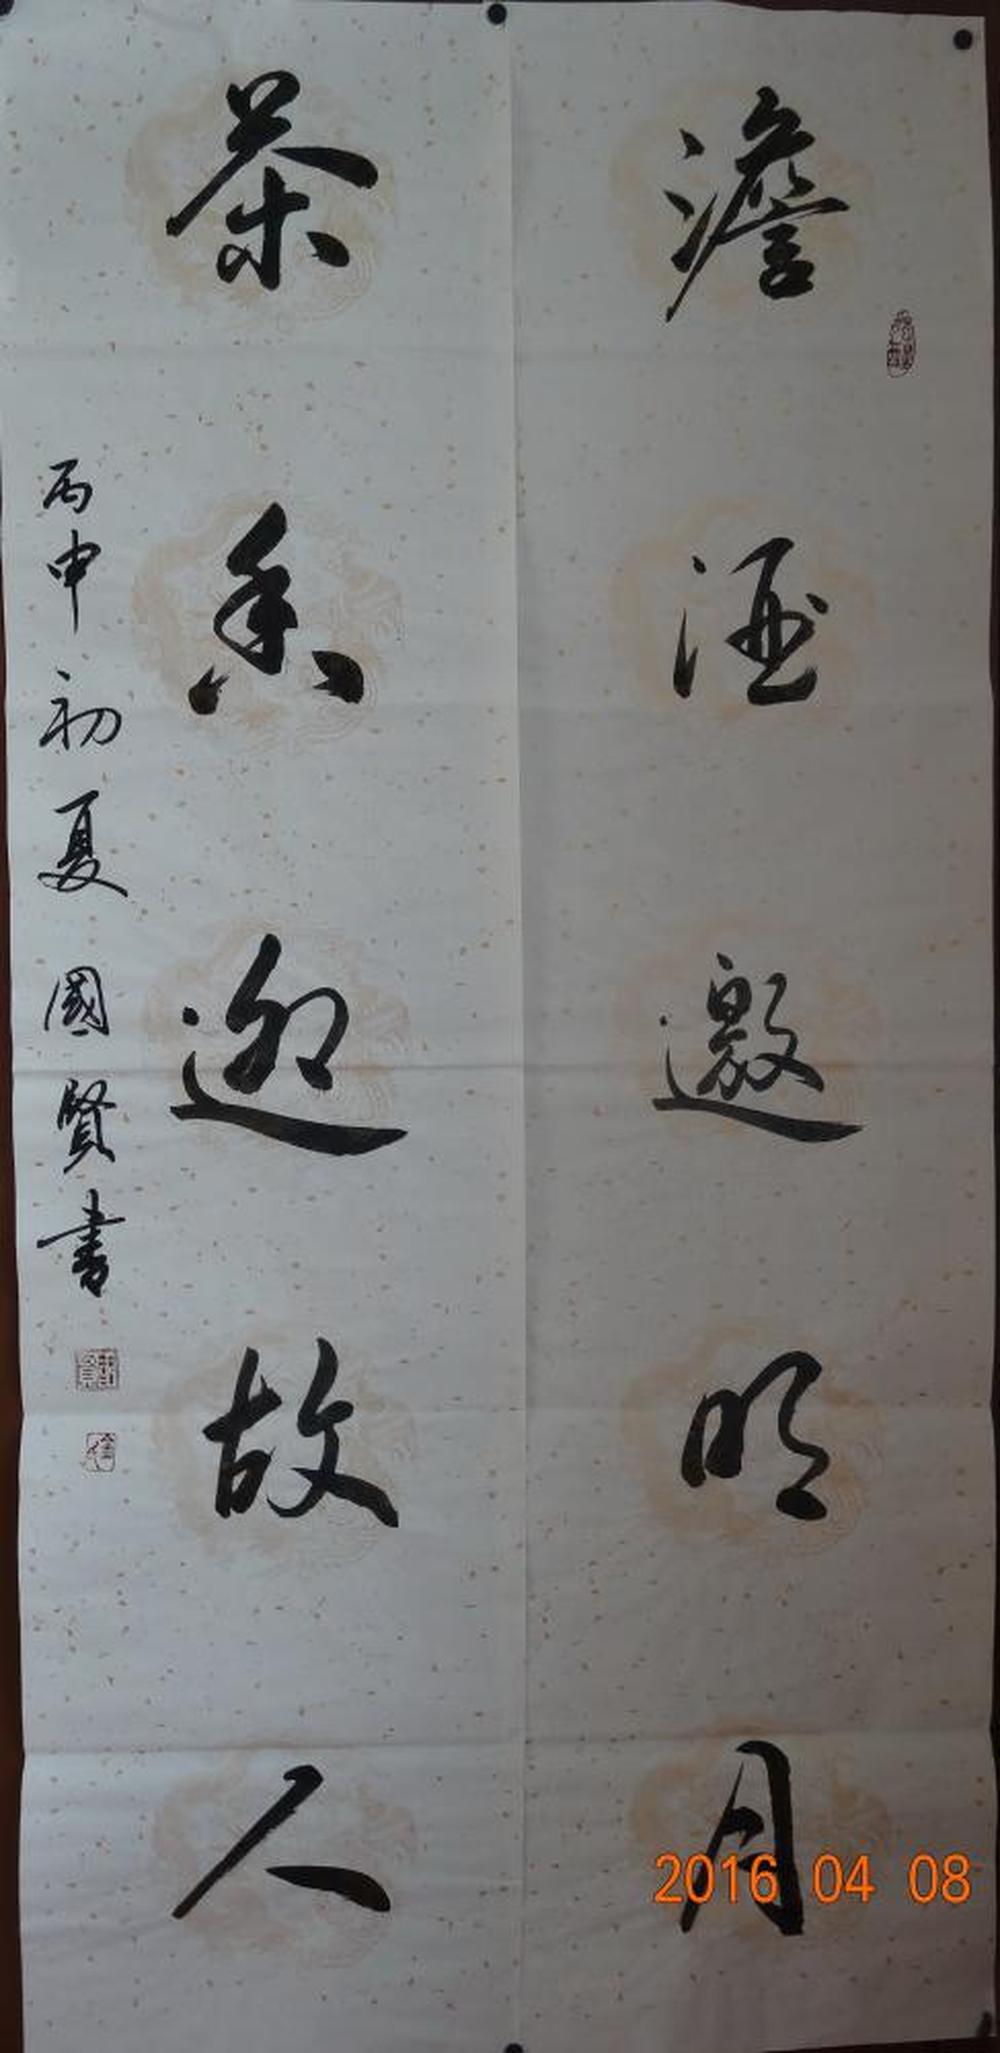 澹酒邀明月
茶香迎故人
丙申初夏國賢書
2016 04 08